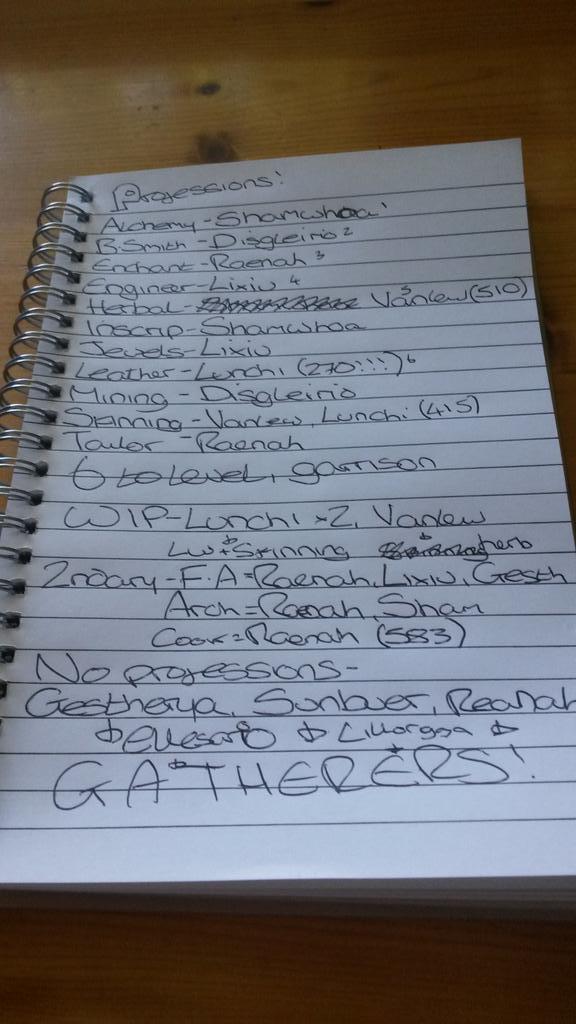 Professions!
Alchemy - Shamwhoa 1
B.Smith - Disgleirio 2
Enchant - Raenah 3
Engineer - Lixiu 4
Herbal - Vanlew (510) 5
Inscrip - Shamwhoa
Jewels - Lixiu
Leather - Lunchi (270!!!) 6
Mining - Disgleirio
Skinning - Vanlew, Lunchi (415)
Tailor - Raenah
6 to level, garrison
WIP - Lunchi x2, Vanlew
LW + Skinning herb
2ndary - F.A = Raenah, Lixiu, Gesth
Arch = Raenah, Sham
Cook = Raenah (583)
No professions -
Gestherya, Reanah
GATHERERS!